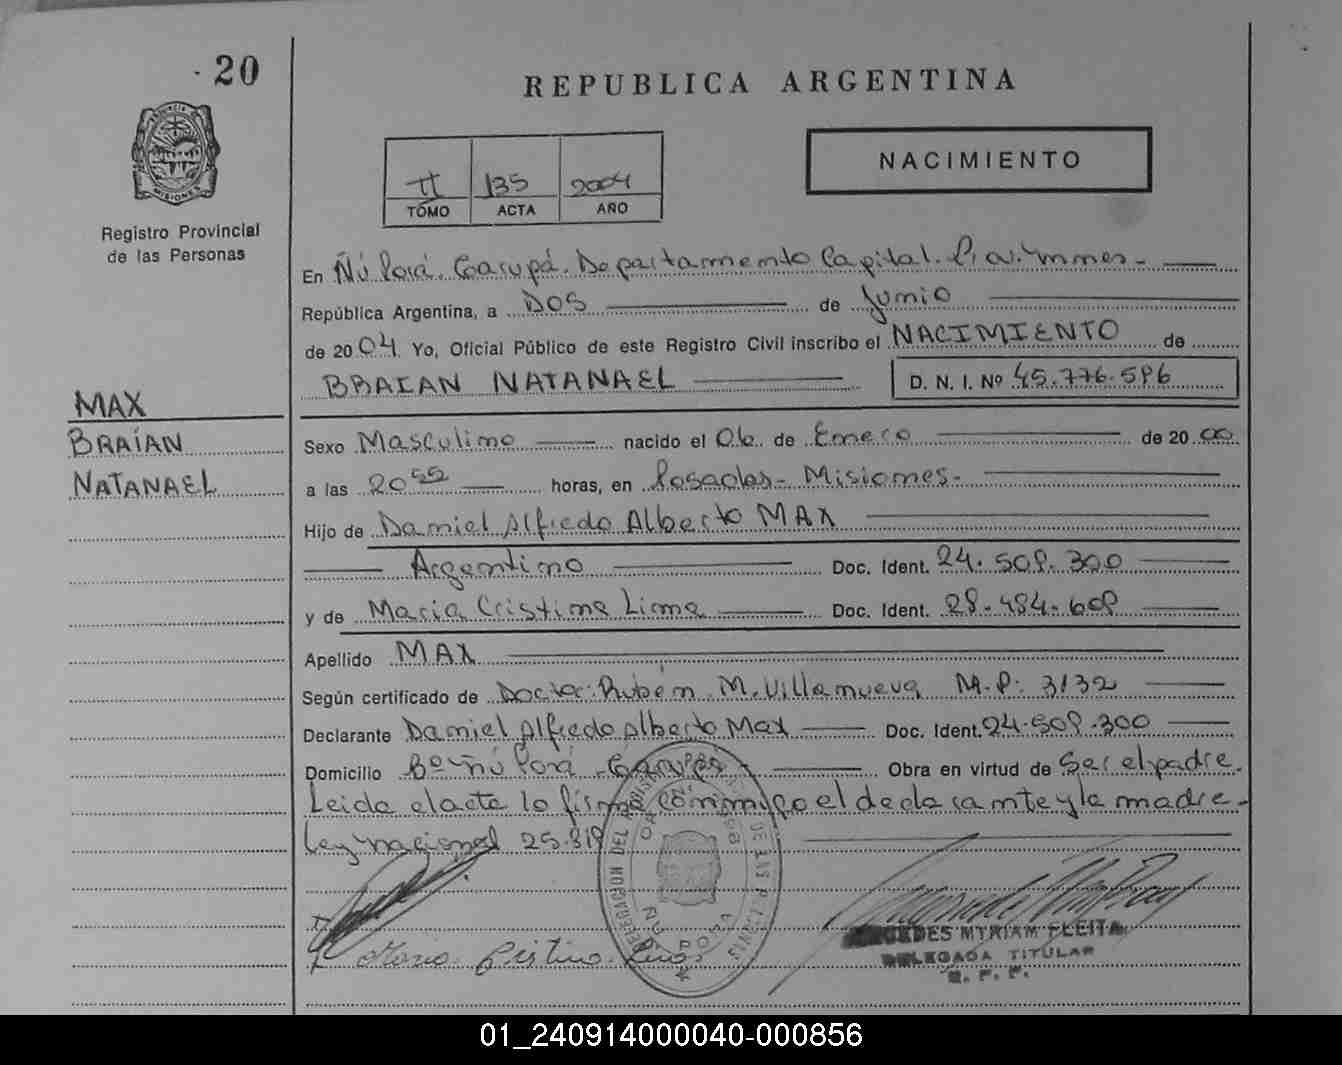 20
REPUBLICA ARGENTINA
NACIMIENTO
II 135 2004
TOMO ACTA AÑO
Registro Provincial
de las Personas
En Ñú Porá. Garupá. Departamento Capital. Prov. Mnes.
República Argentina, a DOS de Junio
de 2004. Yo, Oficial Público de este Registro Civil inscribo el NACIMIENTO de
BRAIAN NATANAEL D. N. I. Nº 45.776.596
MAX
BRAÍAN
NATANAEL
Sexo Masculino nacido el 06 de Enero de 2000
a las 20 55 horas, en Posadas - Misiones.-
Hijo de Daniel Alfredo Alberto MAX
Argentino Doc. Ident. 24.509.300
y de Maria Cristina Lima Doc. Ident. 28.484.608
Apellido MAX
Según certificado de Doctor: Rubén M. Villanueva M.P: 3132
Declarante Daniel Alfredo Alberto Max Doc. Ident. 24.509.300
Domicilio Bº Ñú Porá - Garupá - Obra en virtud de Ser el padre.
Leida el acta la firma conmigo el declarante y la madre-
Ley nacional 25.819
DELEGACION DEL REGISTRO DE LAS PERSONAS
ÑU PORA
Maria Cristina
MERCEDES MYRIAM FLEITA
DELEGADA TITULAR
R. P. P.
01_240914000040-000856